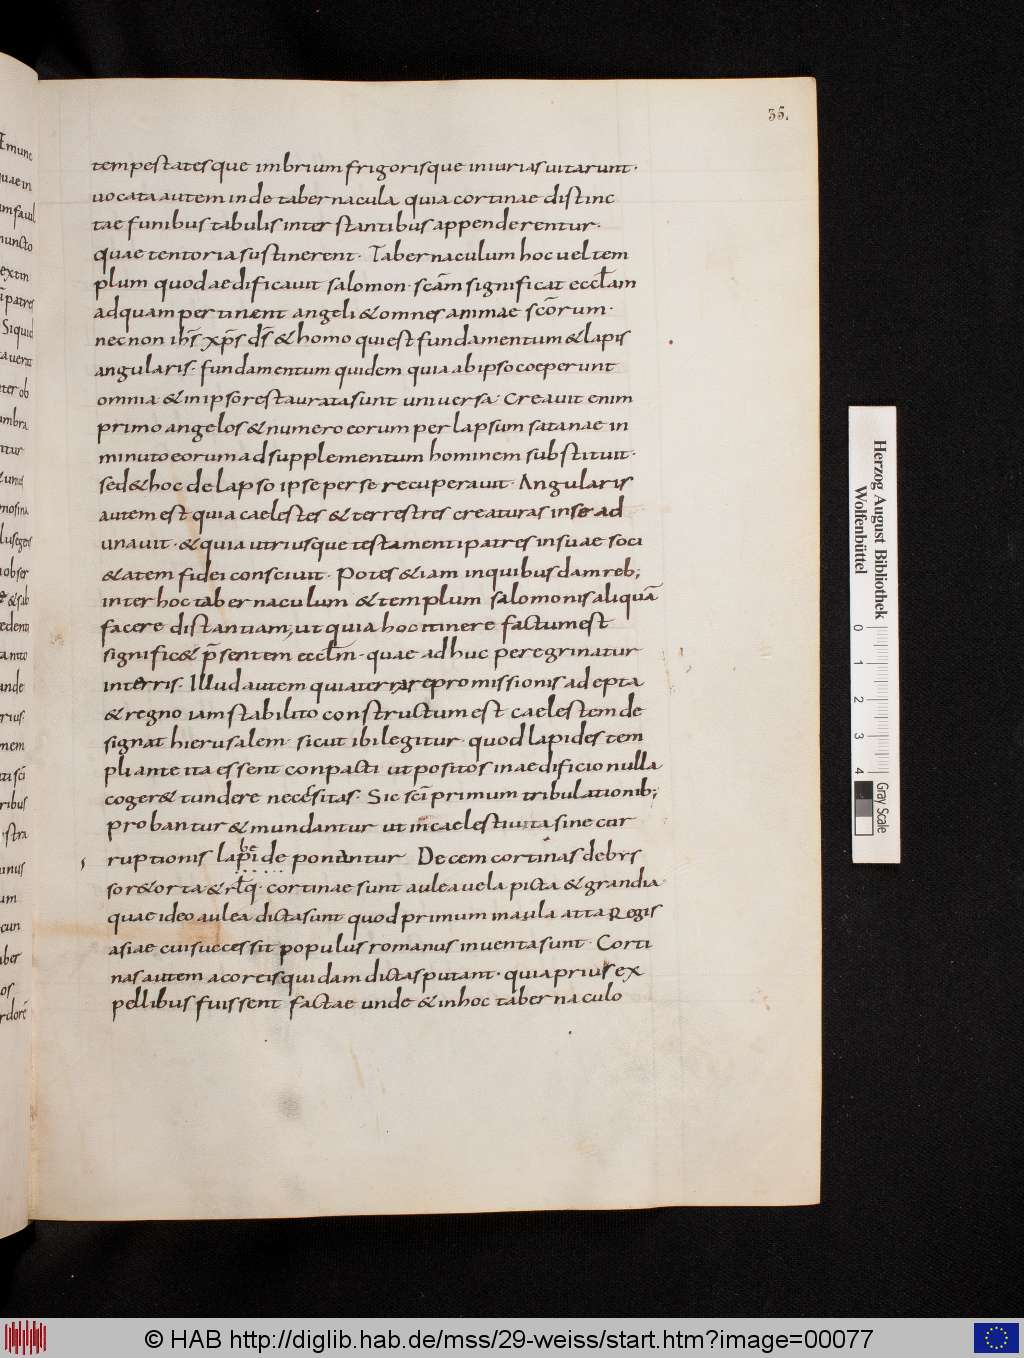 35.
tempestatesque imbrium frigorisque iniurias uitarunt·
uocata autem inde tabernacula quia cortinae distinc
tae funibus tabulis interstantibus appenderentur·
quae tentoria sustinerent· Tabernaculum hoc uel tem
plum quod aedificauit salomon· scām significat eccłam
ad quam pertinent angeli & omnes animae scōrum·
necnon ihs̄ xp̄s ds̄ & homo qui est fundamentum & lapis
angularis· fundamentum quidem quia ab ipso coeperunt
omnia & in ipso restaurata sunt uniuersa· Creauit enim
primo angelos & numero eorum per lapsum satanae in
minuto eorum ad supplementum hominem substituit·
sed & hoc delapso ipse per se recuperauit· Angularis
autem est quia caelestes & terrestres creaturas in se ad
unauit· & quia utriusque testamenti patres in suae soci
&atem fidei consciuit· Potes &iam in quibusdam reb;
inter hoc tabernaculum & templum salomonis aliquā
facere distantiam, ut quia hoc itinere factum est
signific& p̄sentem eccłm· quae adhuc peregrinatur
in terris· Illud autem quia terra repromissionis adepta
& regno iam stabilito constructum est caelestem de
signat hierusalem· sicut ibi legitur· quod lapides tem
pli ante ita essent conpacti ut positos in aedificio nulla
coger& tundere necessitas· Sic scī primum tribulationib;
probantur & mundantur ut in caelesti uita sine cor
ruptionis lapide ponantur Decem cortinas de bys
so r&orta & rłq· cortinae sunt aulea uela picta & grandia·
quae ideo aulea dicta sunt quod primum in aula atta Regis
asiae cui successit populus romanus inuenta sunt· Corti
nas autem a coreis quidam dictas putant· quia prius ex
pellibus fuissent factae unde & in hoc tabernaculo
Herzog August Bibliothek
Wolfenbüttel
0 1 2 3 4
Gray Scale
© HAB http://diglib.hab.de/mss/29-weiss/start.htm?image=00077